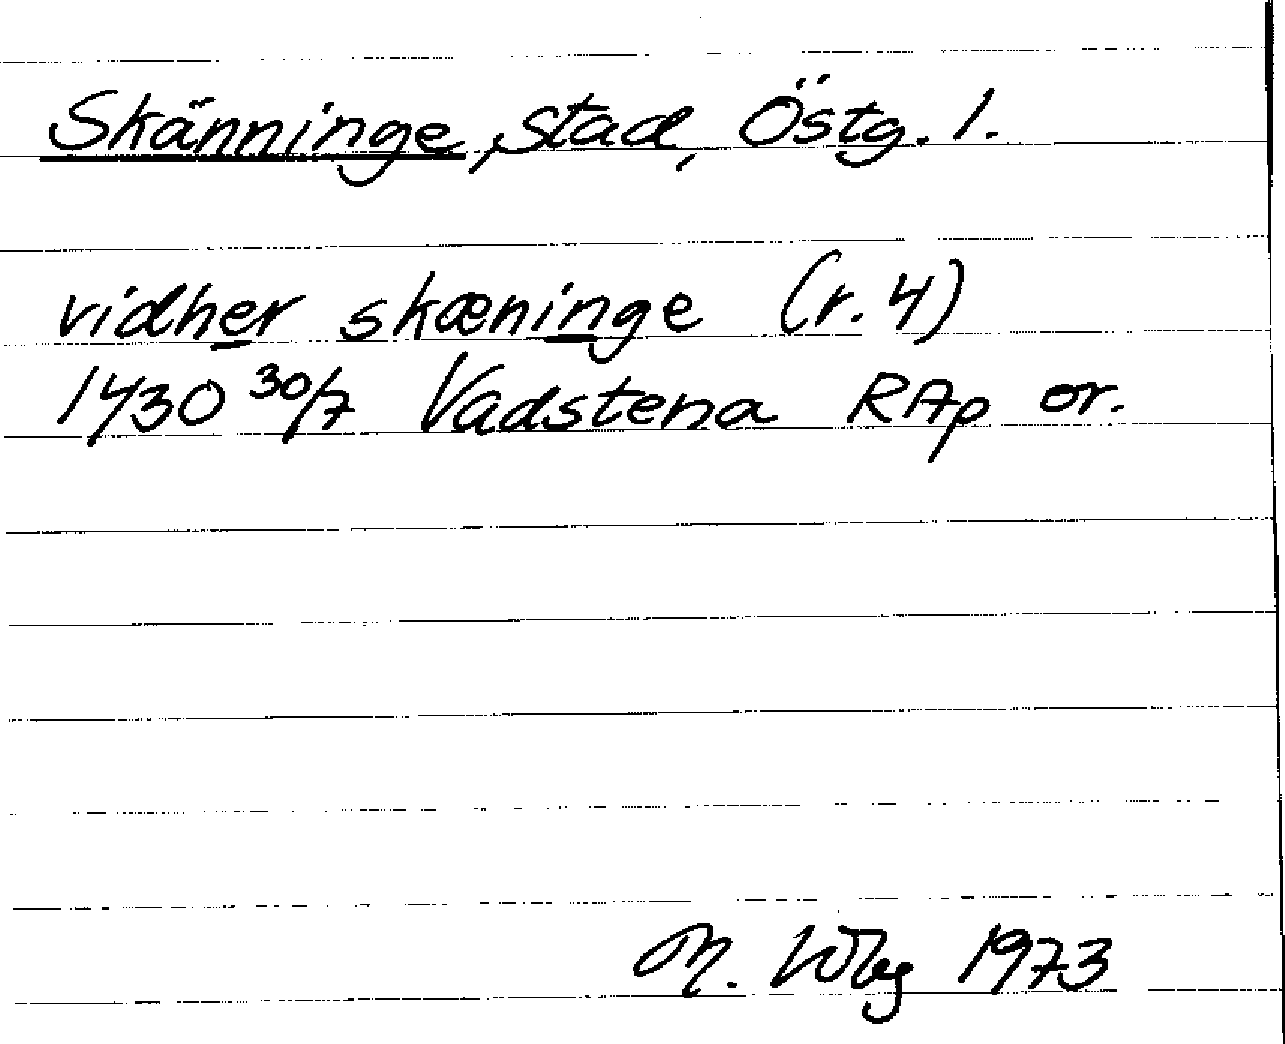 Skänninge, stad, Östg. l.
vidher skæninge (r. 4)
1430 30/7 Vadstena RAp or.
M. 1973